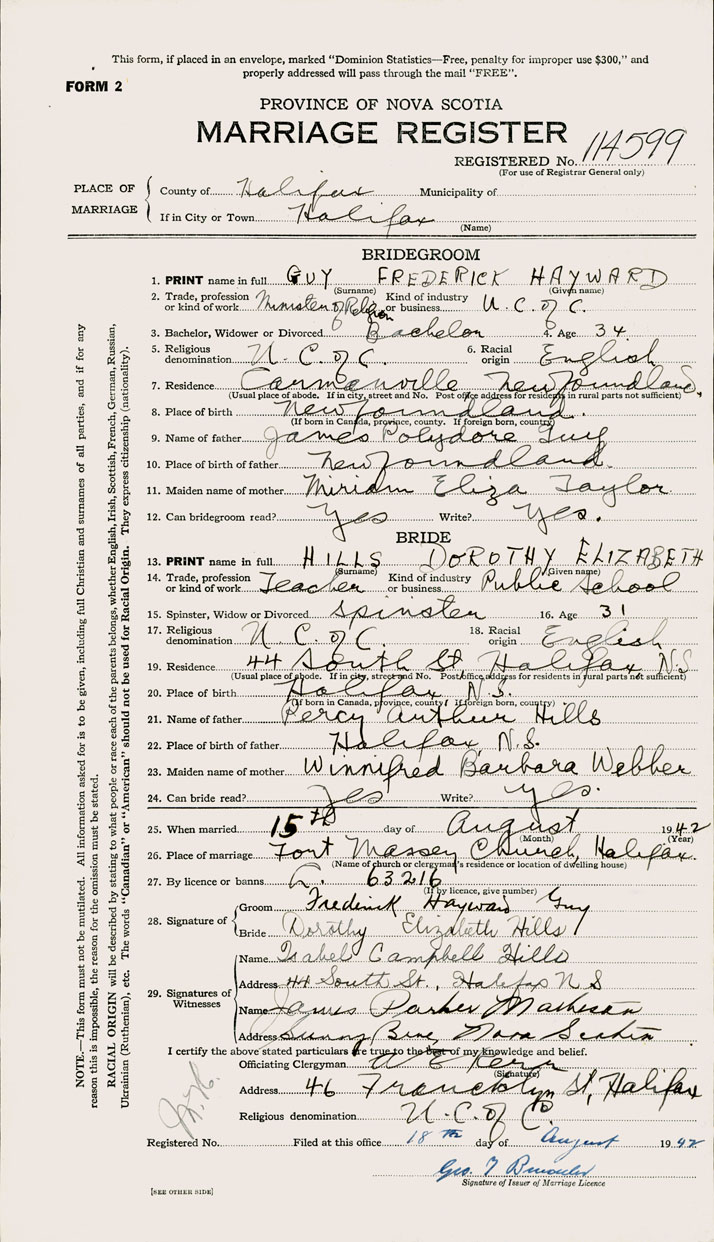 This form, if placed in an envelope, marked “Dominion Statistics—Free, penalty for improper use $300,” and
properly addressed will pass through the mail “FREE”.
FORM 2
PROVINCE OF NOVA SCOTIA
MARRIAGE REGISTER
REGISTERED No. 114599
(For use of Registrar General only)
PLACE OF MARRIAGE
County of Halifax Municipality of
If in City or Town Halifax
(Name)
BRIDEGROOM
1. PRINT name in full GUY FREDERICK HAYWARD
(Surname) (Given name)
2. Trade, profession or kind of work Minister of Religion Kind of industry or business U. C. of C.
3. Bachelor, Widower or Divorced Bachelor 4. Age 34
5. Religious denomination U. C. of C. 6. Racial origin English
7. Residence Carmanville Newfoundland,
(Usual place of abode. If in city, street and No. Post office address for residents in rural parts not sufficient)
8. Place of birth Newfoundland.
(If born in Canada, province, county. If foreign born, country)
9. Name of father James Polydore Guy
10. Place of birth of father Newfoundland.
11. Maiden name of mother Miriam Eliza Taylor
12. Can bridegroom read? Yes Write? Yes.
BRIDE
13. PRINT name in full HILLS DOROTHY ELIZABETH
(Surname) (Given name)
14. Trade, profession or kind of work Teacher Kind of industry or business Public School
15. Spinster, Widow or Divorced Spinster 16. Age 31
17. Religious denomination U. C. of C. 18. Racial origin English
19. Residence 44 South St. Halifax N.S
(Usual place of abode. If in city, street and No. Post office address for residents in rural parts not sufficient)
20. Place of birth Halifax N.S.
(If born in Canada, province, county. If foreign born, country)
21. Name of father Percy Arthur Hills
22. Place of birth of father Halifax, N.S.
23. Maiden name of mother Winnifred Barbara Webber
24. Can bride read? Yes Write? Yes.
25. When married 15th day of August 1942
(Month) (Year)
26. Place of marriage Fort Massey Church, Halifax.
(Name of church or clergyman's residence or location of dwelling house)
27. By licence or banns L. 63216
(If by licence, give number)
28. Signature of
Groom Frederick Hayward Guy
Bride Dorothy Elizabeth Hills
29. Signatures of Witnesses
Name Isabel Campbell Hills
Address 44 South St., Halifax N S
Name James Parker Matheson
Address Sunny Brae, Nova Scotia
I certify the above stated particulars are true to the best of my knowledge and belief.
Officiating Clergyman Kerr
(Signature)
Address 46 Francklyn St, Halifax
Religious denomination U. C. of C.
Registered No. Filed at this office 18th day of August 1942
Geo. T
Signature of Issuer of Marriage Licence
[SEE OTHER SIDE]
NOTE.—This form must not be mutilated. All information asked for is to be given, including full Christian and surnames of all parties, and if for any
reason this is impossible, the reason for the omission must be stated.
RACIAL ORIGIN will be described by stating to what people or race each of the parents belongs, whether English, Irish, Scottish, French, German, Russian,
Ukrainian (Ruthenian), etc. The words “Canadian” or “American” should not be used for Racial Origin. They express citizenship (nationality).